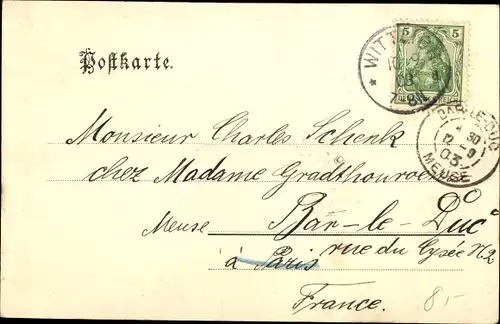 Postkarte.
5 5
WITT
7-8N
BAR-LE-DUC
12 -9
03
MEUSE
Monsieur Charles Schenk
chez Madame Gradthouroer
Bar-le-Duc
Meuse rue du Lycée N2
à Paris
France.
8,-